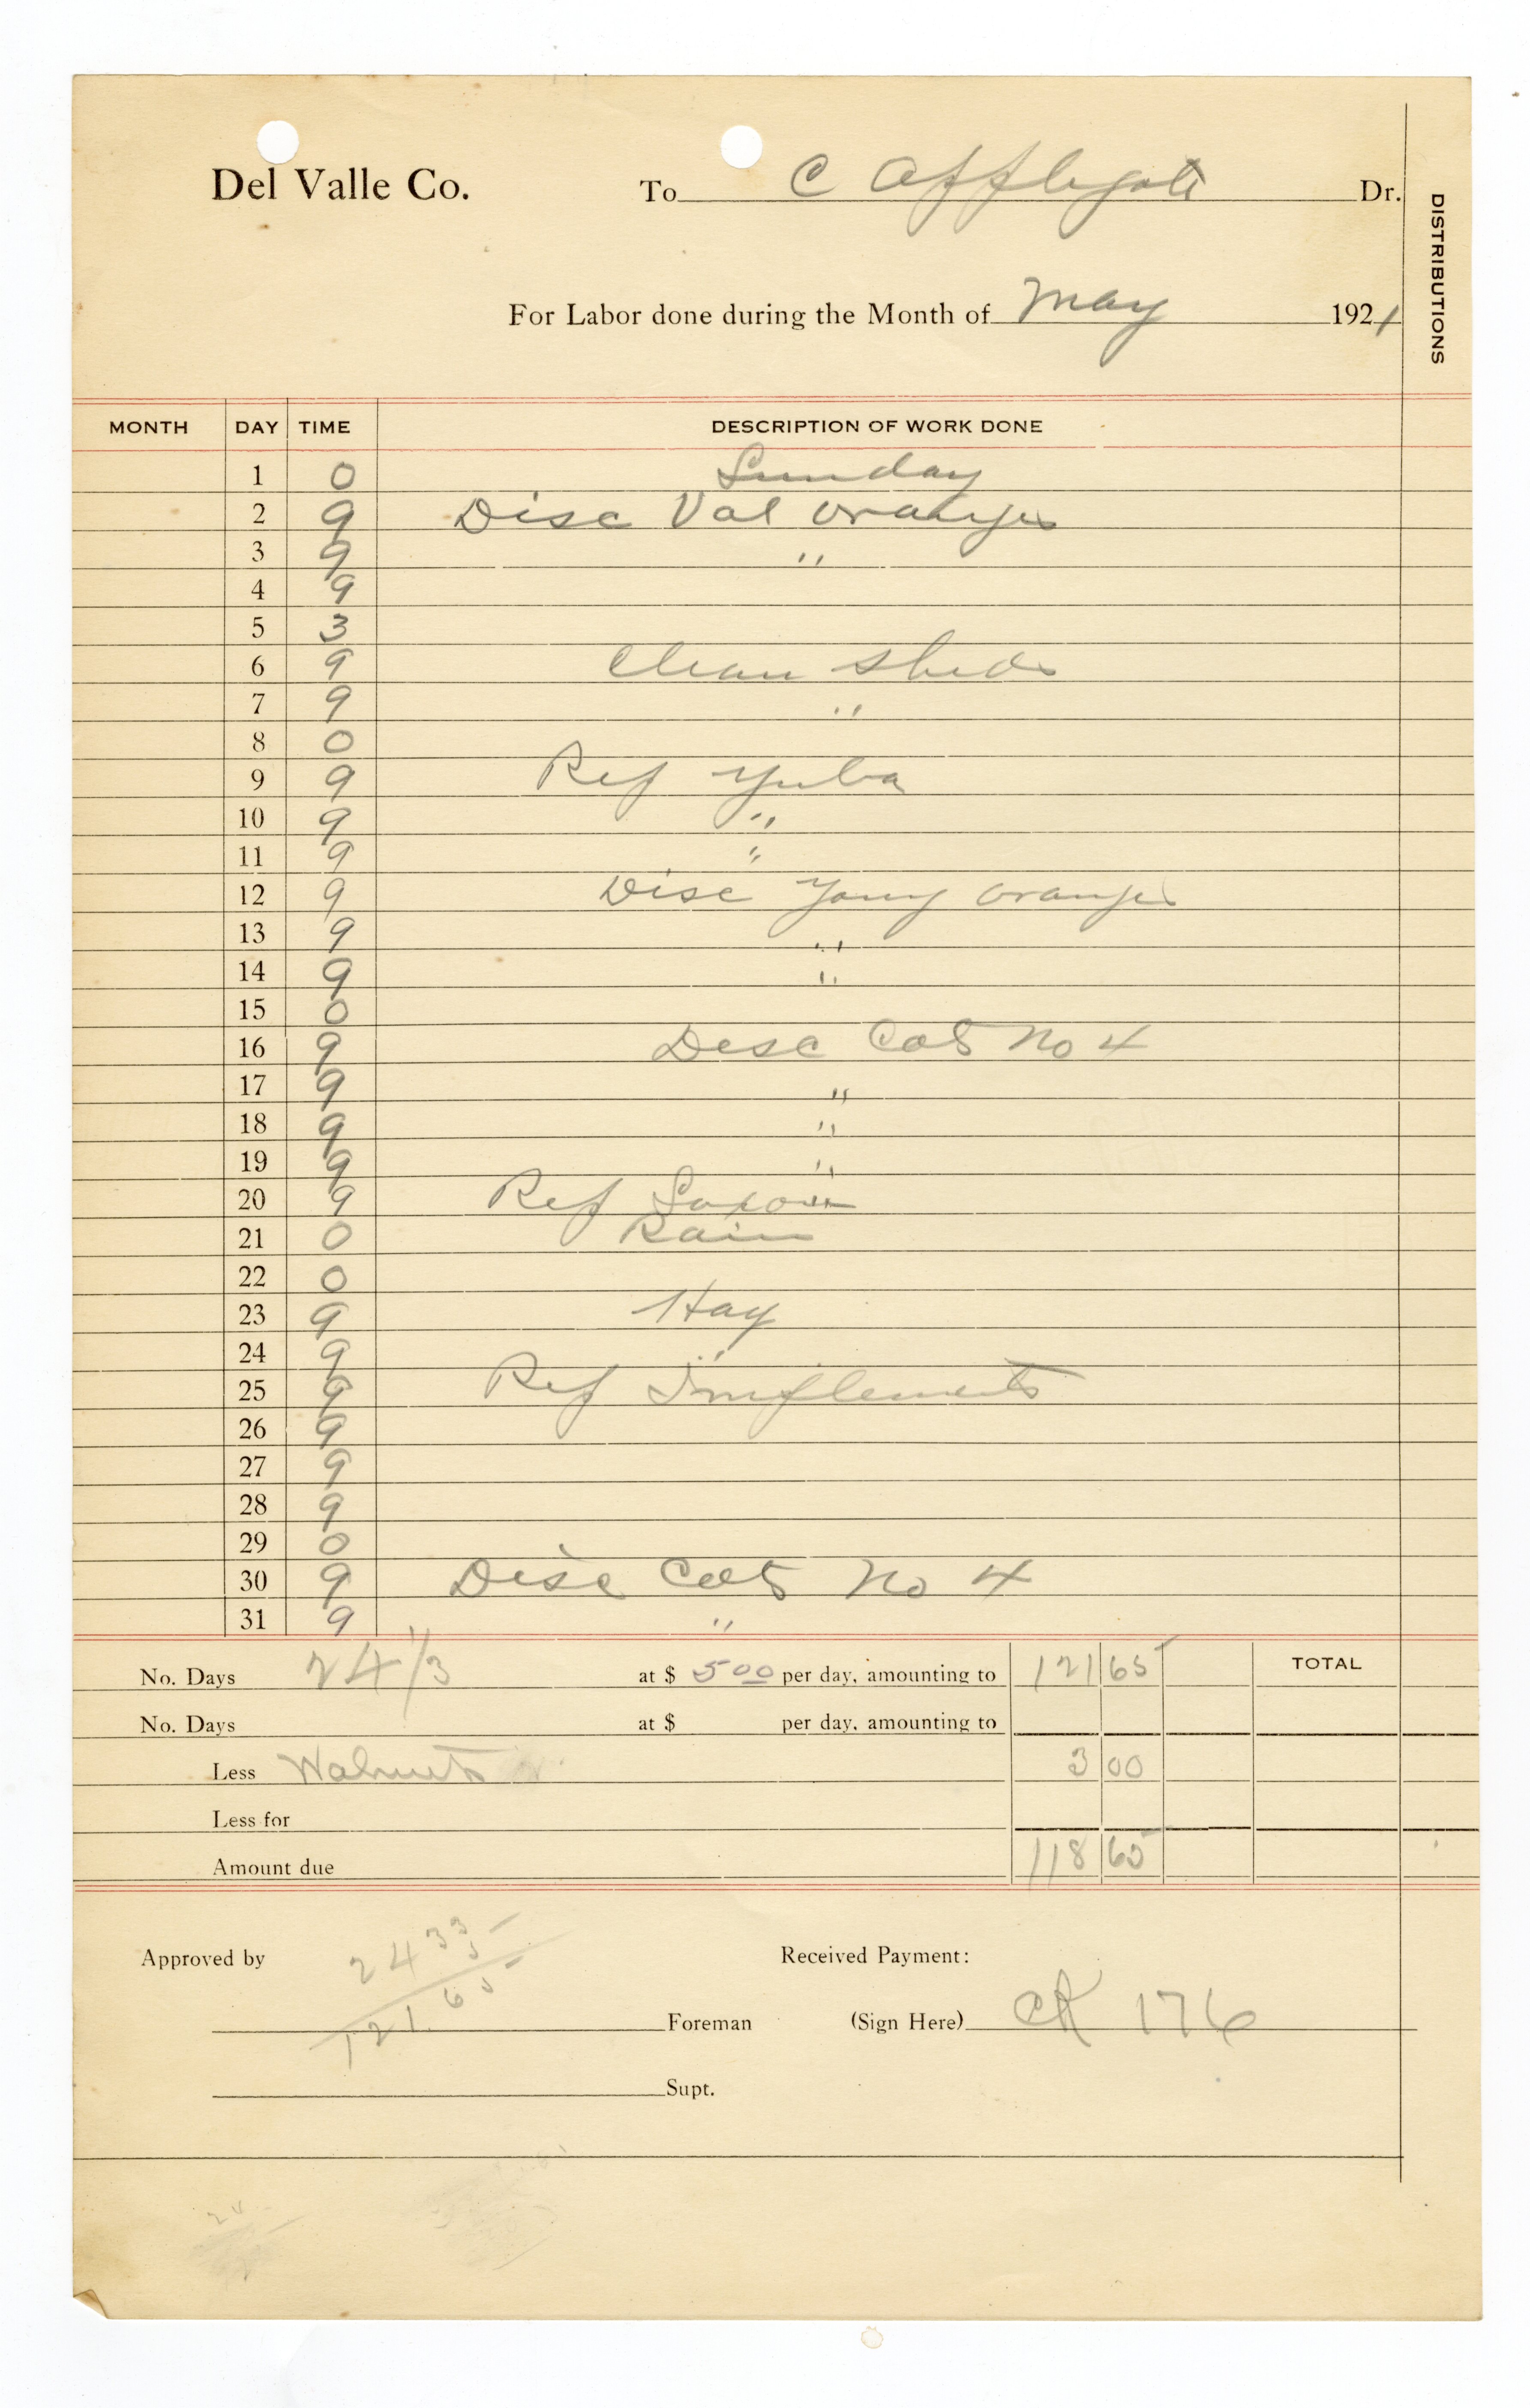 Del Valle Co. To C Applegate Dr.
DISTRIBUTIONS
For Labor done during the Month of May 1921
MONTH DAY TIME DESCRIPTION OF WORK DONE
1 0 Sunday
2 9 Disc Val oranges
3 9 "
4 9
5 3
6 9 Clean sheds
7 9 "
8 0
9 9 Rep Yuba
10 9 "
11 9 "
12 9 Disc Young oranges
13 9 "
14 9 "
15 0
16 9 Disc Cots No 4
17 9 "
18 9 "
19 9 "
20 9 Rep Saxon
21 0 Rain
22 0
23 9 Hay
24 9 "
25 9 Rep Implements
26 9
27 9
28 9
29 0
30 9 Disc Cots No 4
31 9 "
No. Days 24 1/3 at $ 5 00 per day, amounting to 121 65 TOTAL
No. Days at $ per day, amounting to
Less Walnuts 3 00
Less for
Amount due 118 65
24 33
5
Approved by Received Payment:
121.65
Foreman (Sign Here) CK 176
Supt.
24